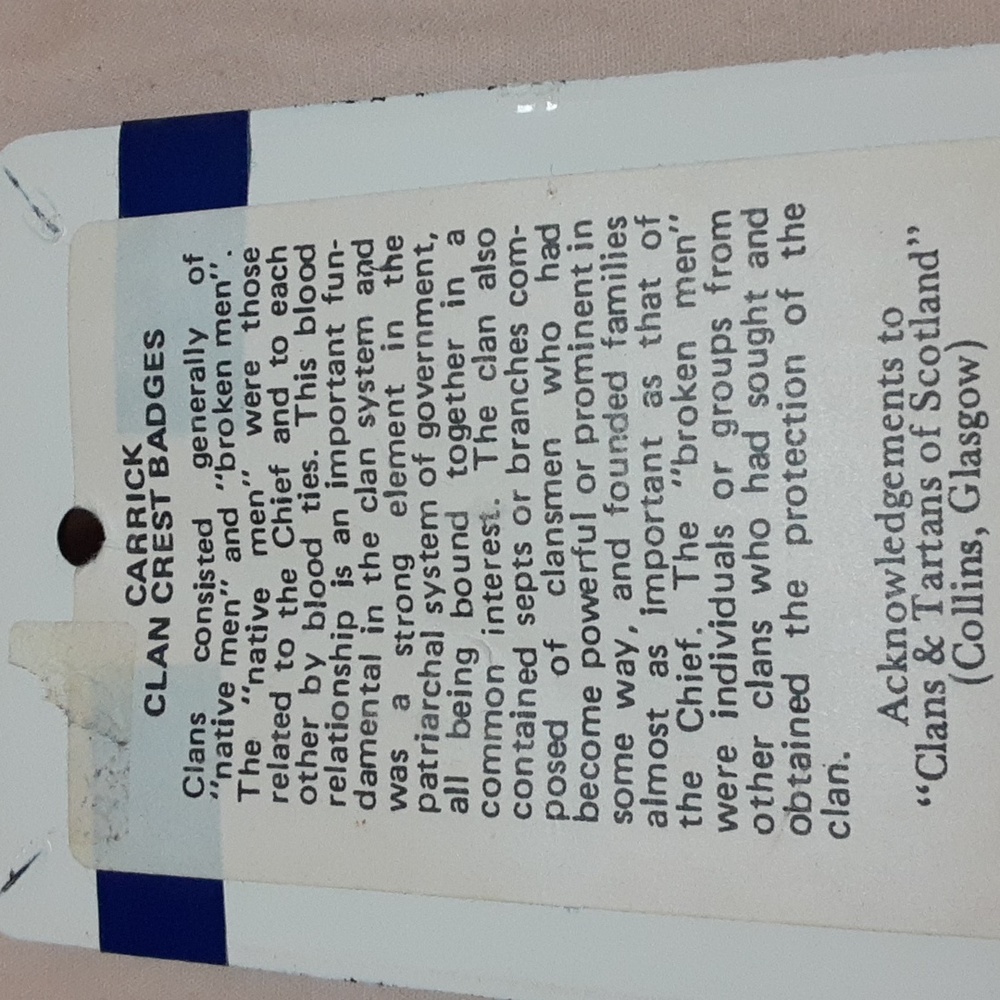 CARRICK
CLAN CREST BADGES
Clans consisted generally of
"native men" and "broken men".
The "native men" were those
related to the Chief and to each
other by blood ties. This blood
relationship is an important fun-
damental in the clan system and
was a strong element in the
patriarchal system of government,
all being bound together in a
common interest. The clan also
contained septs or branches com-
posed of clansmen who had
become powerful or prominent in
some way, and founded families
almost as important as that of
the Chief. The "broken men"
were individuals or groups from
other clans who had sought and
obtained the protection of the
clan.
Acknowledgements to
“Clans & Tartans of Scotland”
(Collins, Glasgow)